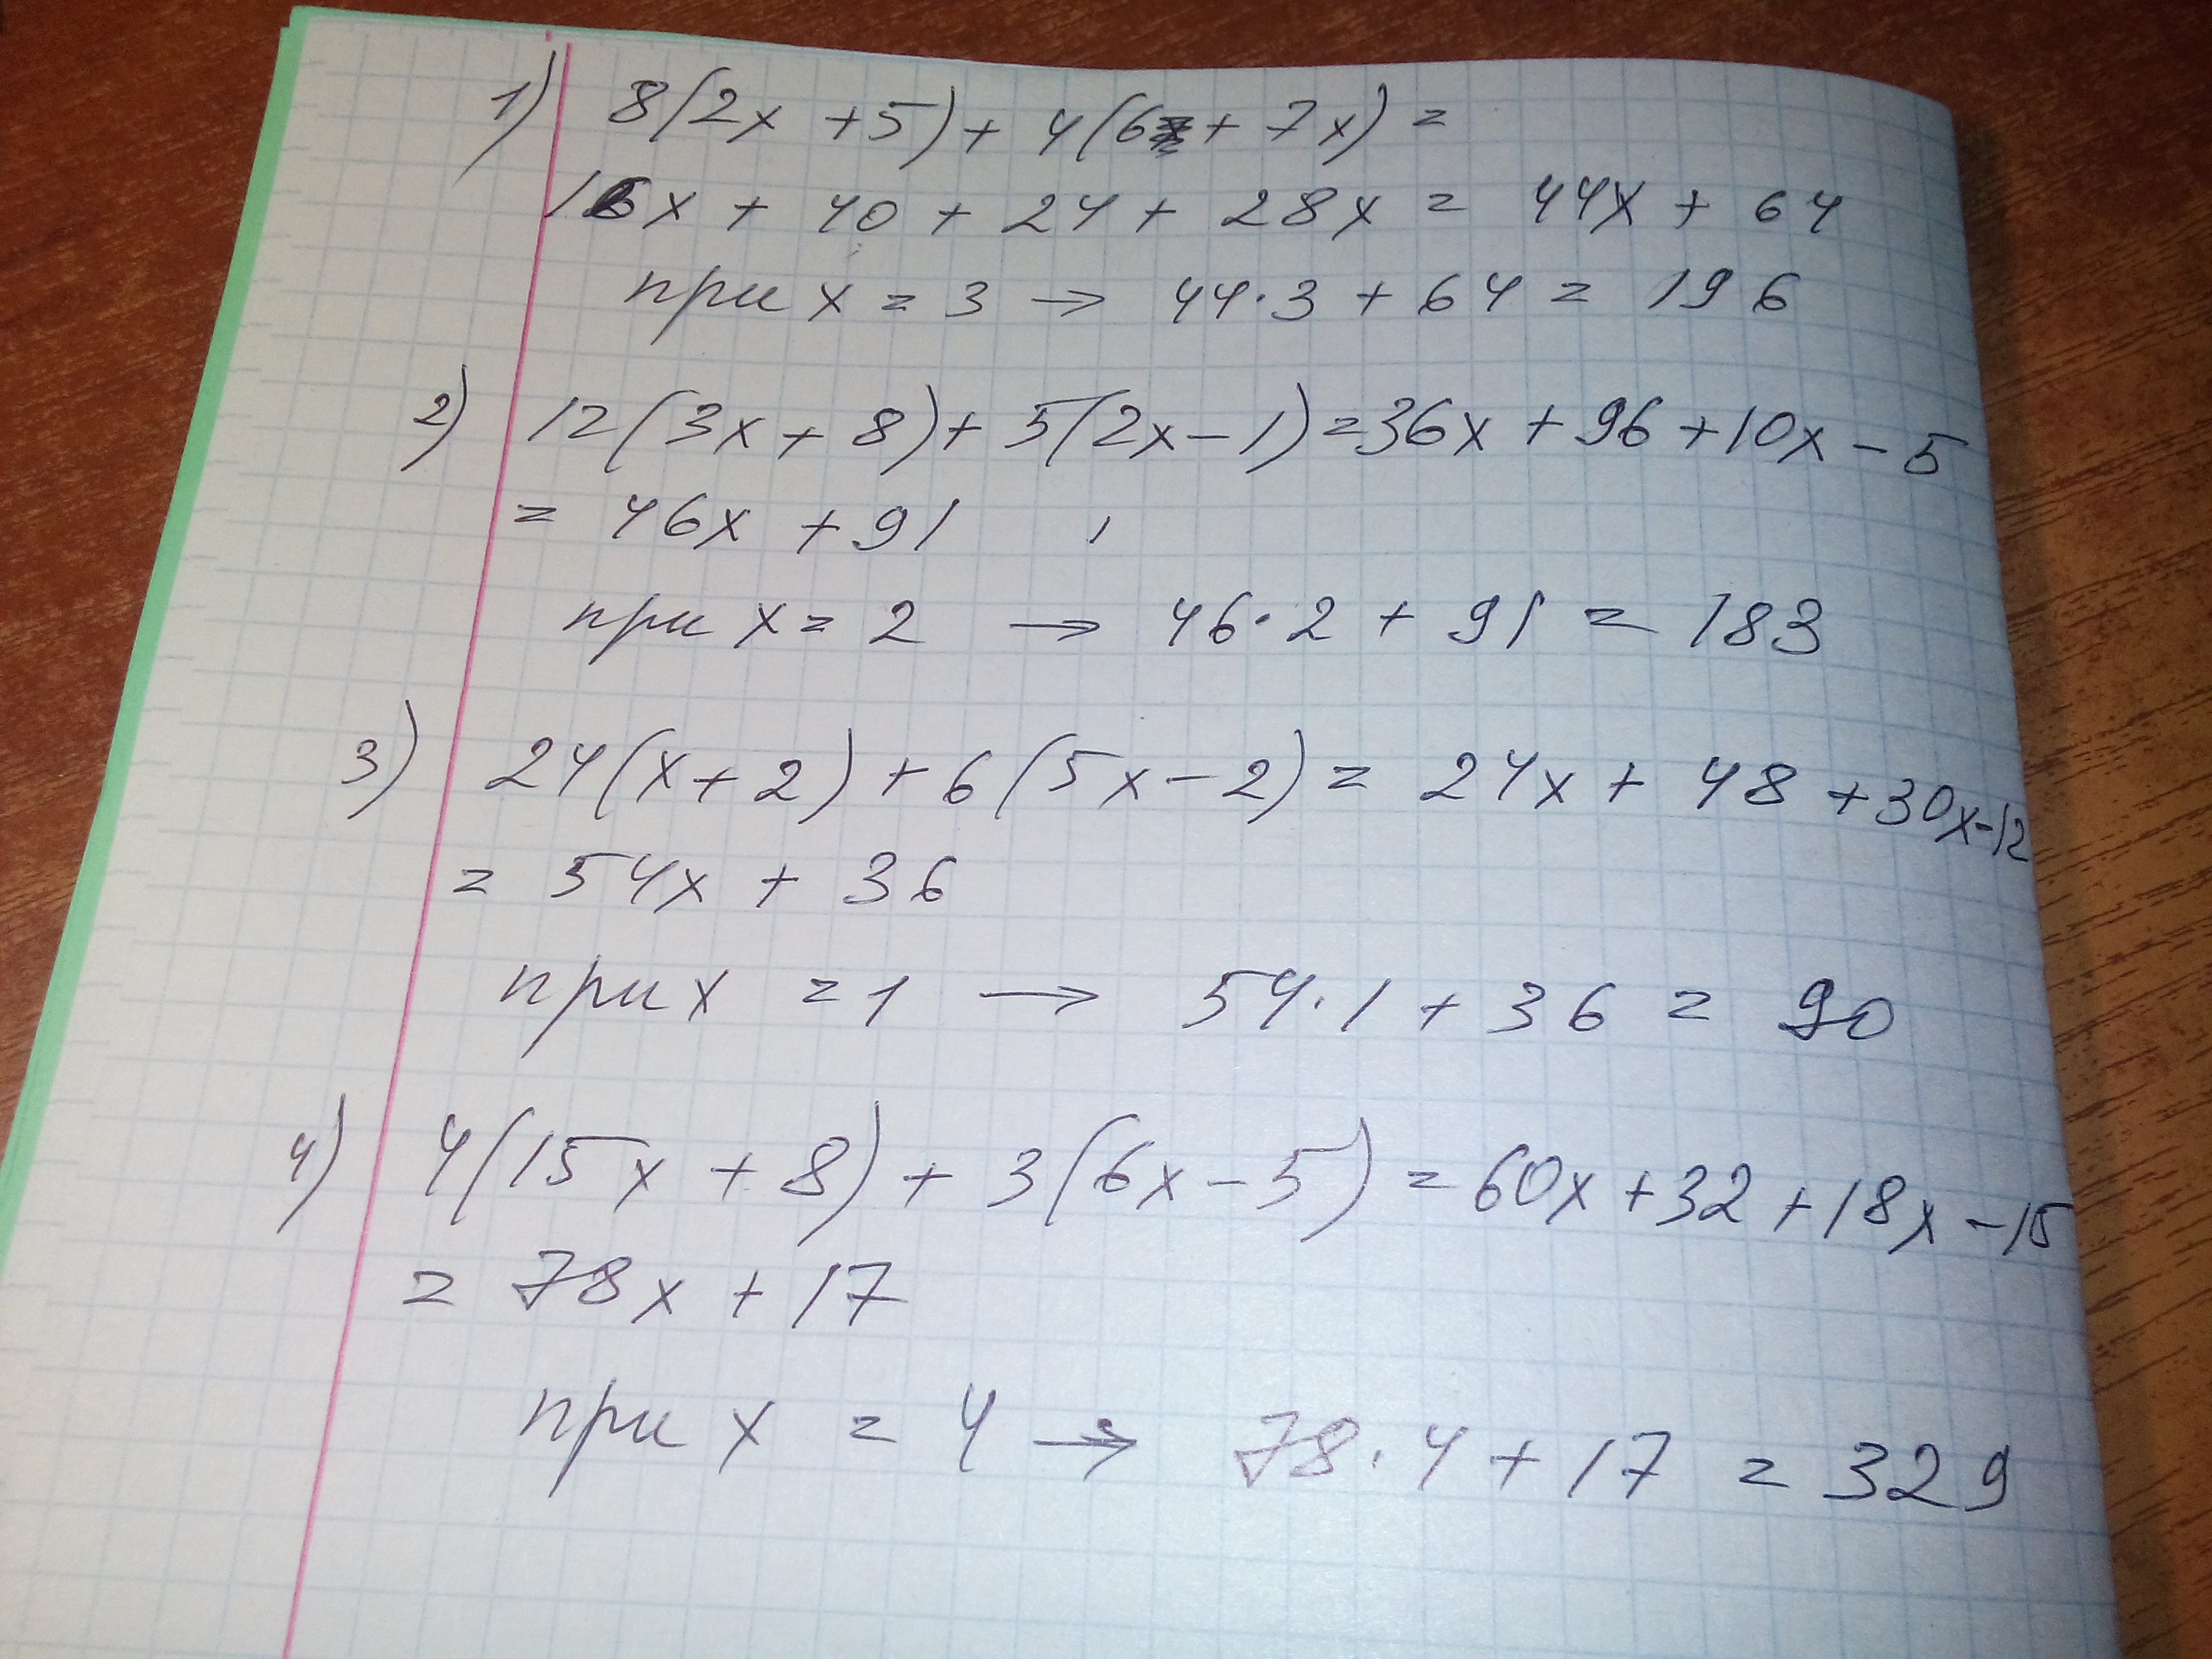 1) 8(2x + 5) + 4(6 + 7x) =
16x + 40 + 24 + 28x = 44x + 64
при x = 3 → 44·3 + 64 = 196
2) 12(3x + 8) + 5(2x - 1) = 36x + 96 + 10x - 5
= 46x + 91
при x = 2 → 46·2 + 91 = 183
3) 24(x + 2) + 6(5x - 2) = 24x + 48 + 30x - 12
= 54x + 36
при x = 1 → 54·1 + 36 = 90
4) 4(15x + 8) + 3(6x - 5) = 60x + 32 + 18x - 15
= 78x + 17
при x = 4 → 78·4 + 17 = 329